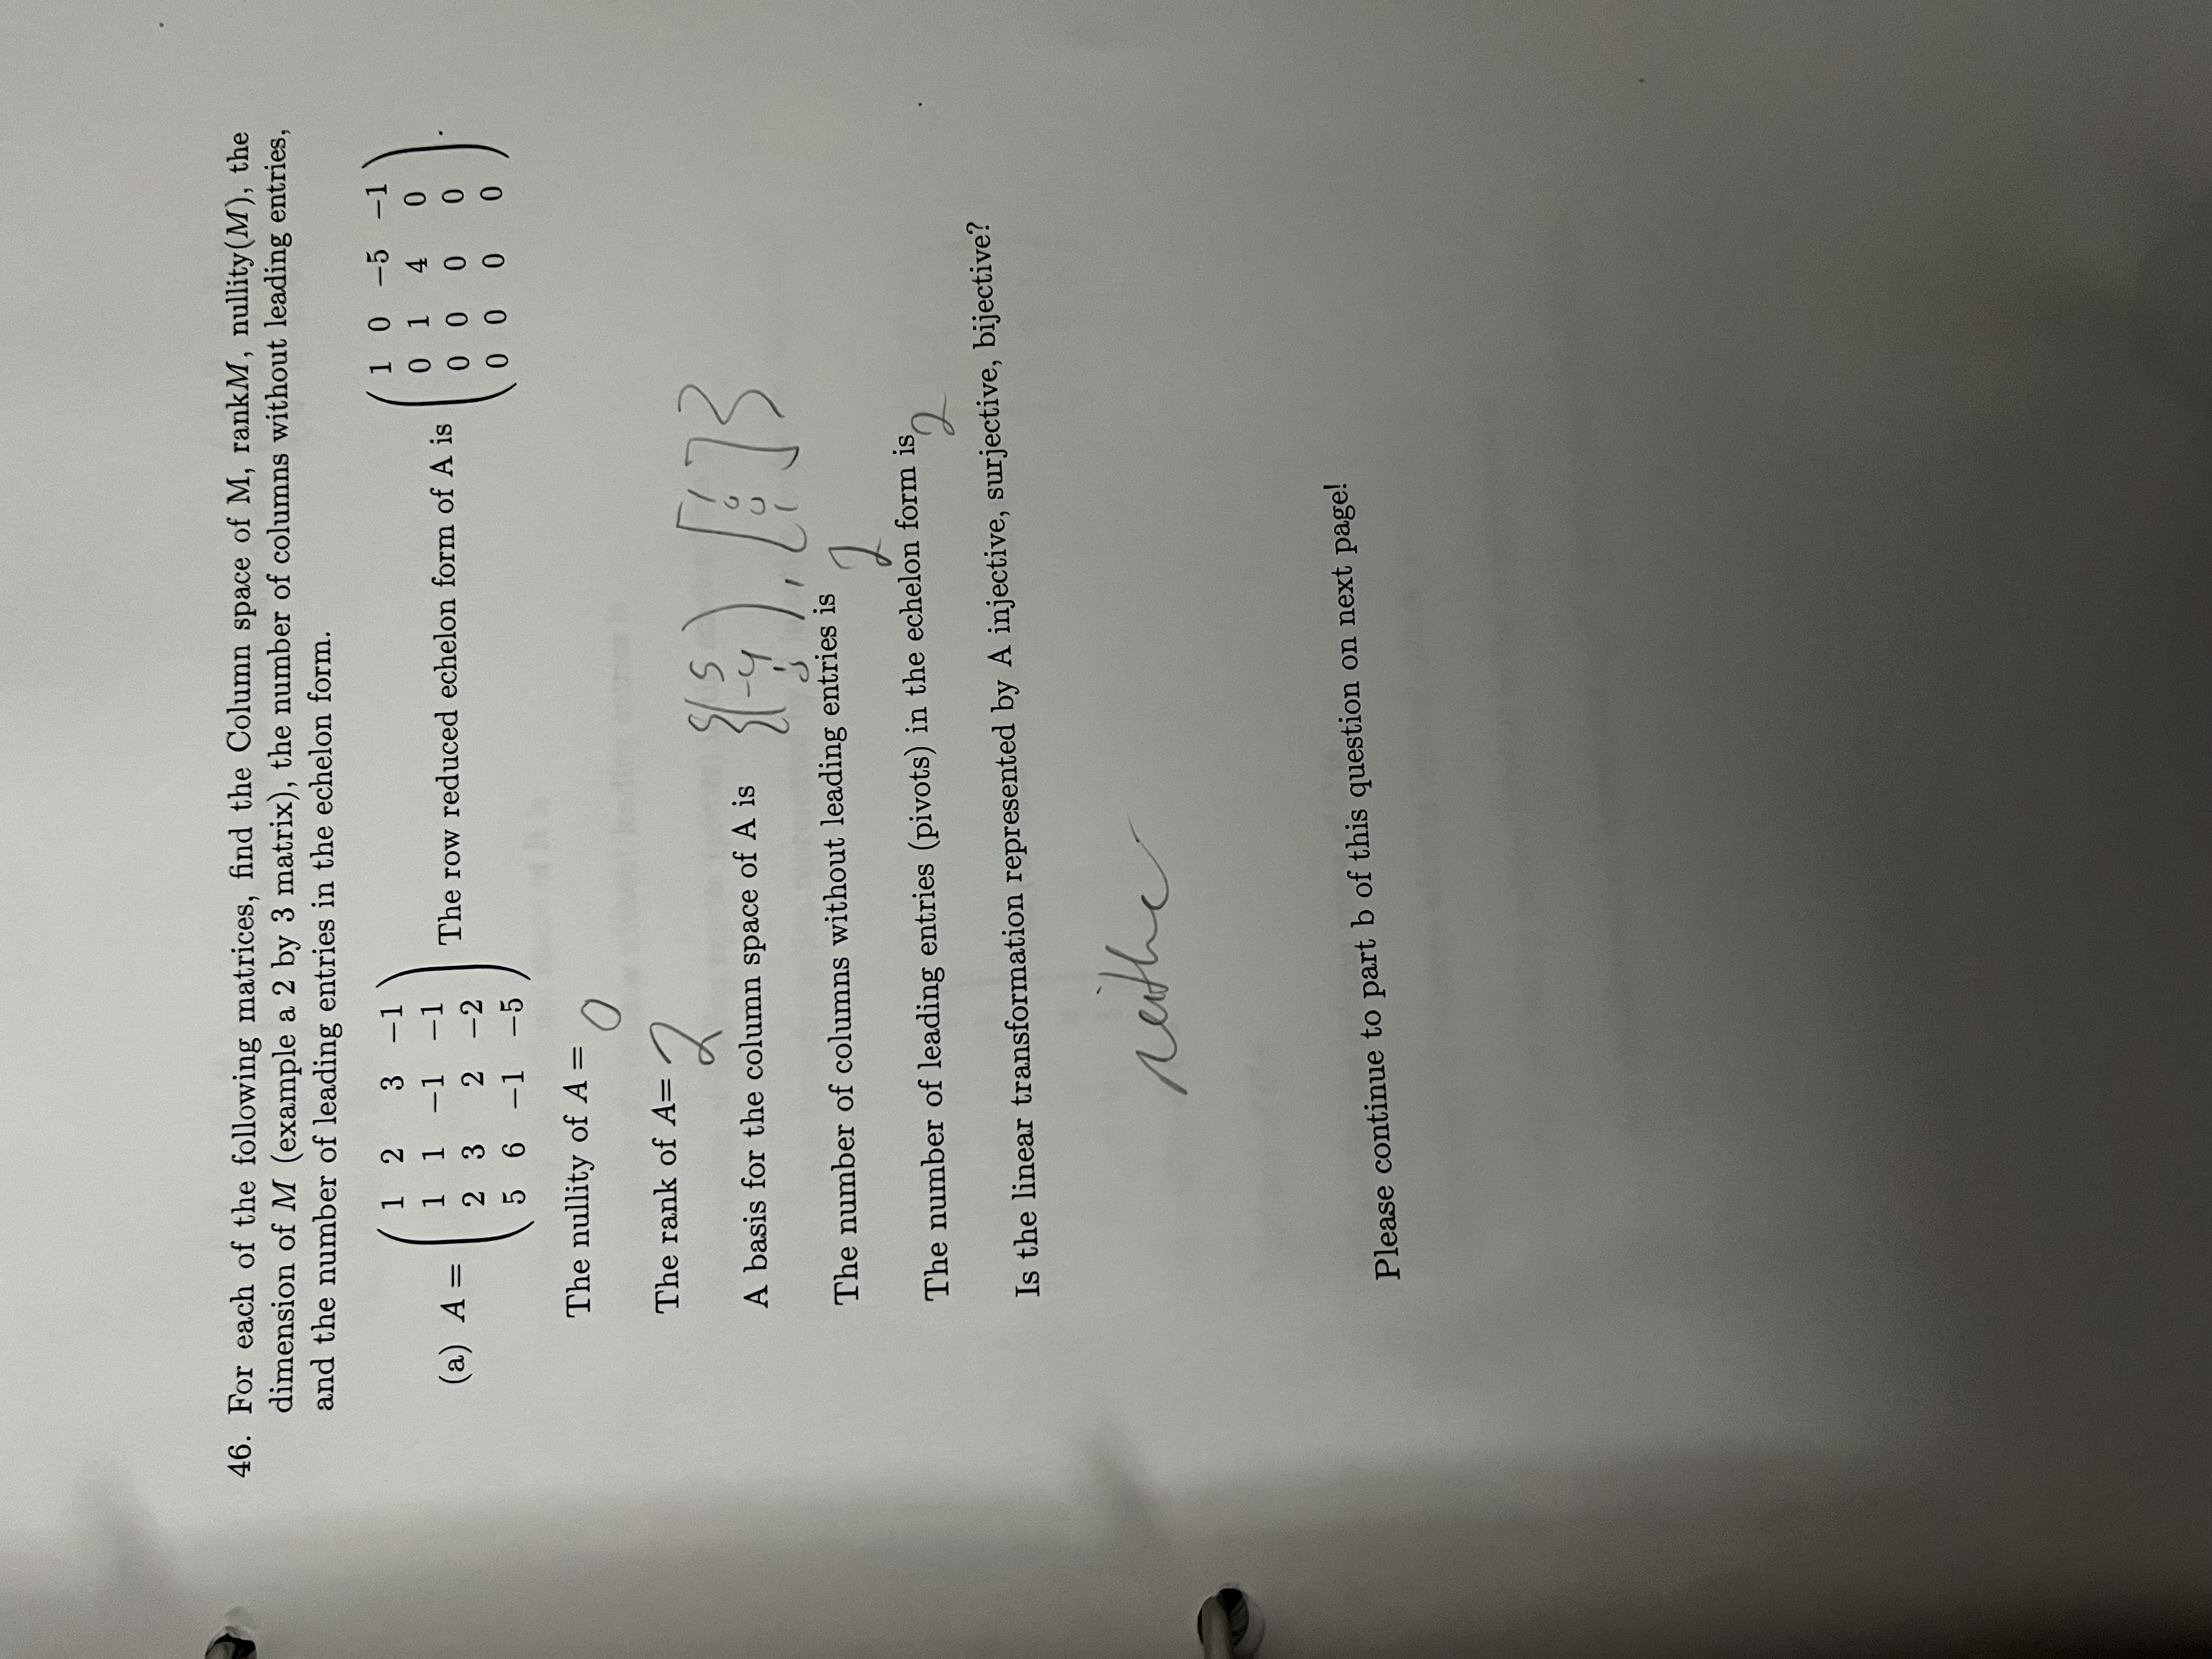 46. For each of the following matrices, find the Column space of M, rankM, nullity(M), the
dimension of M (example a 2 by 3 matrix), the number of columns without leading entries,
and the number of leading entries in the echelon form.
(a) A = ( 1 2 3 −1 The row reduced echelon form of A is ( 1 0 −5 −1
1 1 −1 −1 0 1 4 0
2 3 2 −2 0 0 0 0
5 6 −1 −5 ) 0 0 0 0 ).
The nullity of A = 0
The rank of A= 2
A basis for the column space of A is {( 5 -4 ), [ 1 0 0 1 ]}
The number of columns without leading entries is 2
The number of leading entries (pivots) in the echelon form is 2
Is the linear transformation represented by A injective, surjective, bijective?
Please continue to part b of this question on next page!